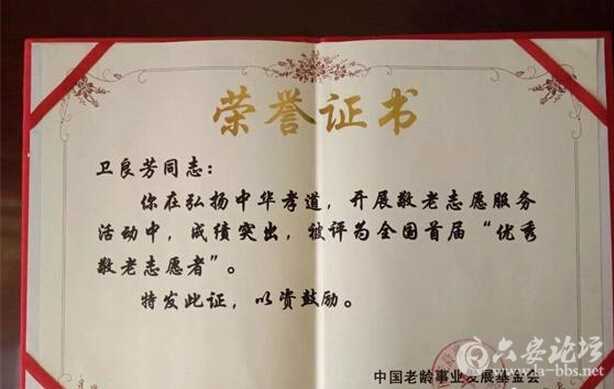 荣誉证书
卫良芳同志：
你在弘扬中华孝道，开展敬老志愿服务
活动中，成绩突出，被评为全国首届“优秀
敬老志愿者”。
特发此证，以资鼓励。
中国老龄事业发展基金会
六安论坛
www.la-bbs.net